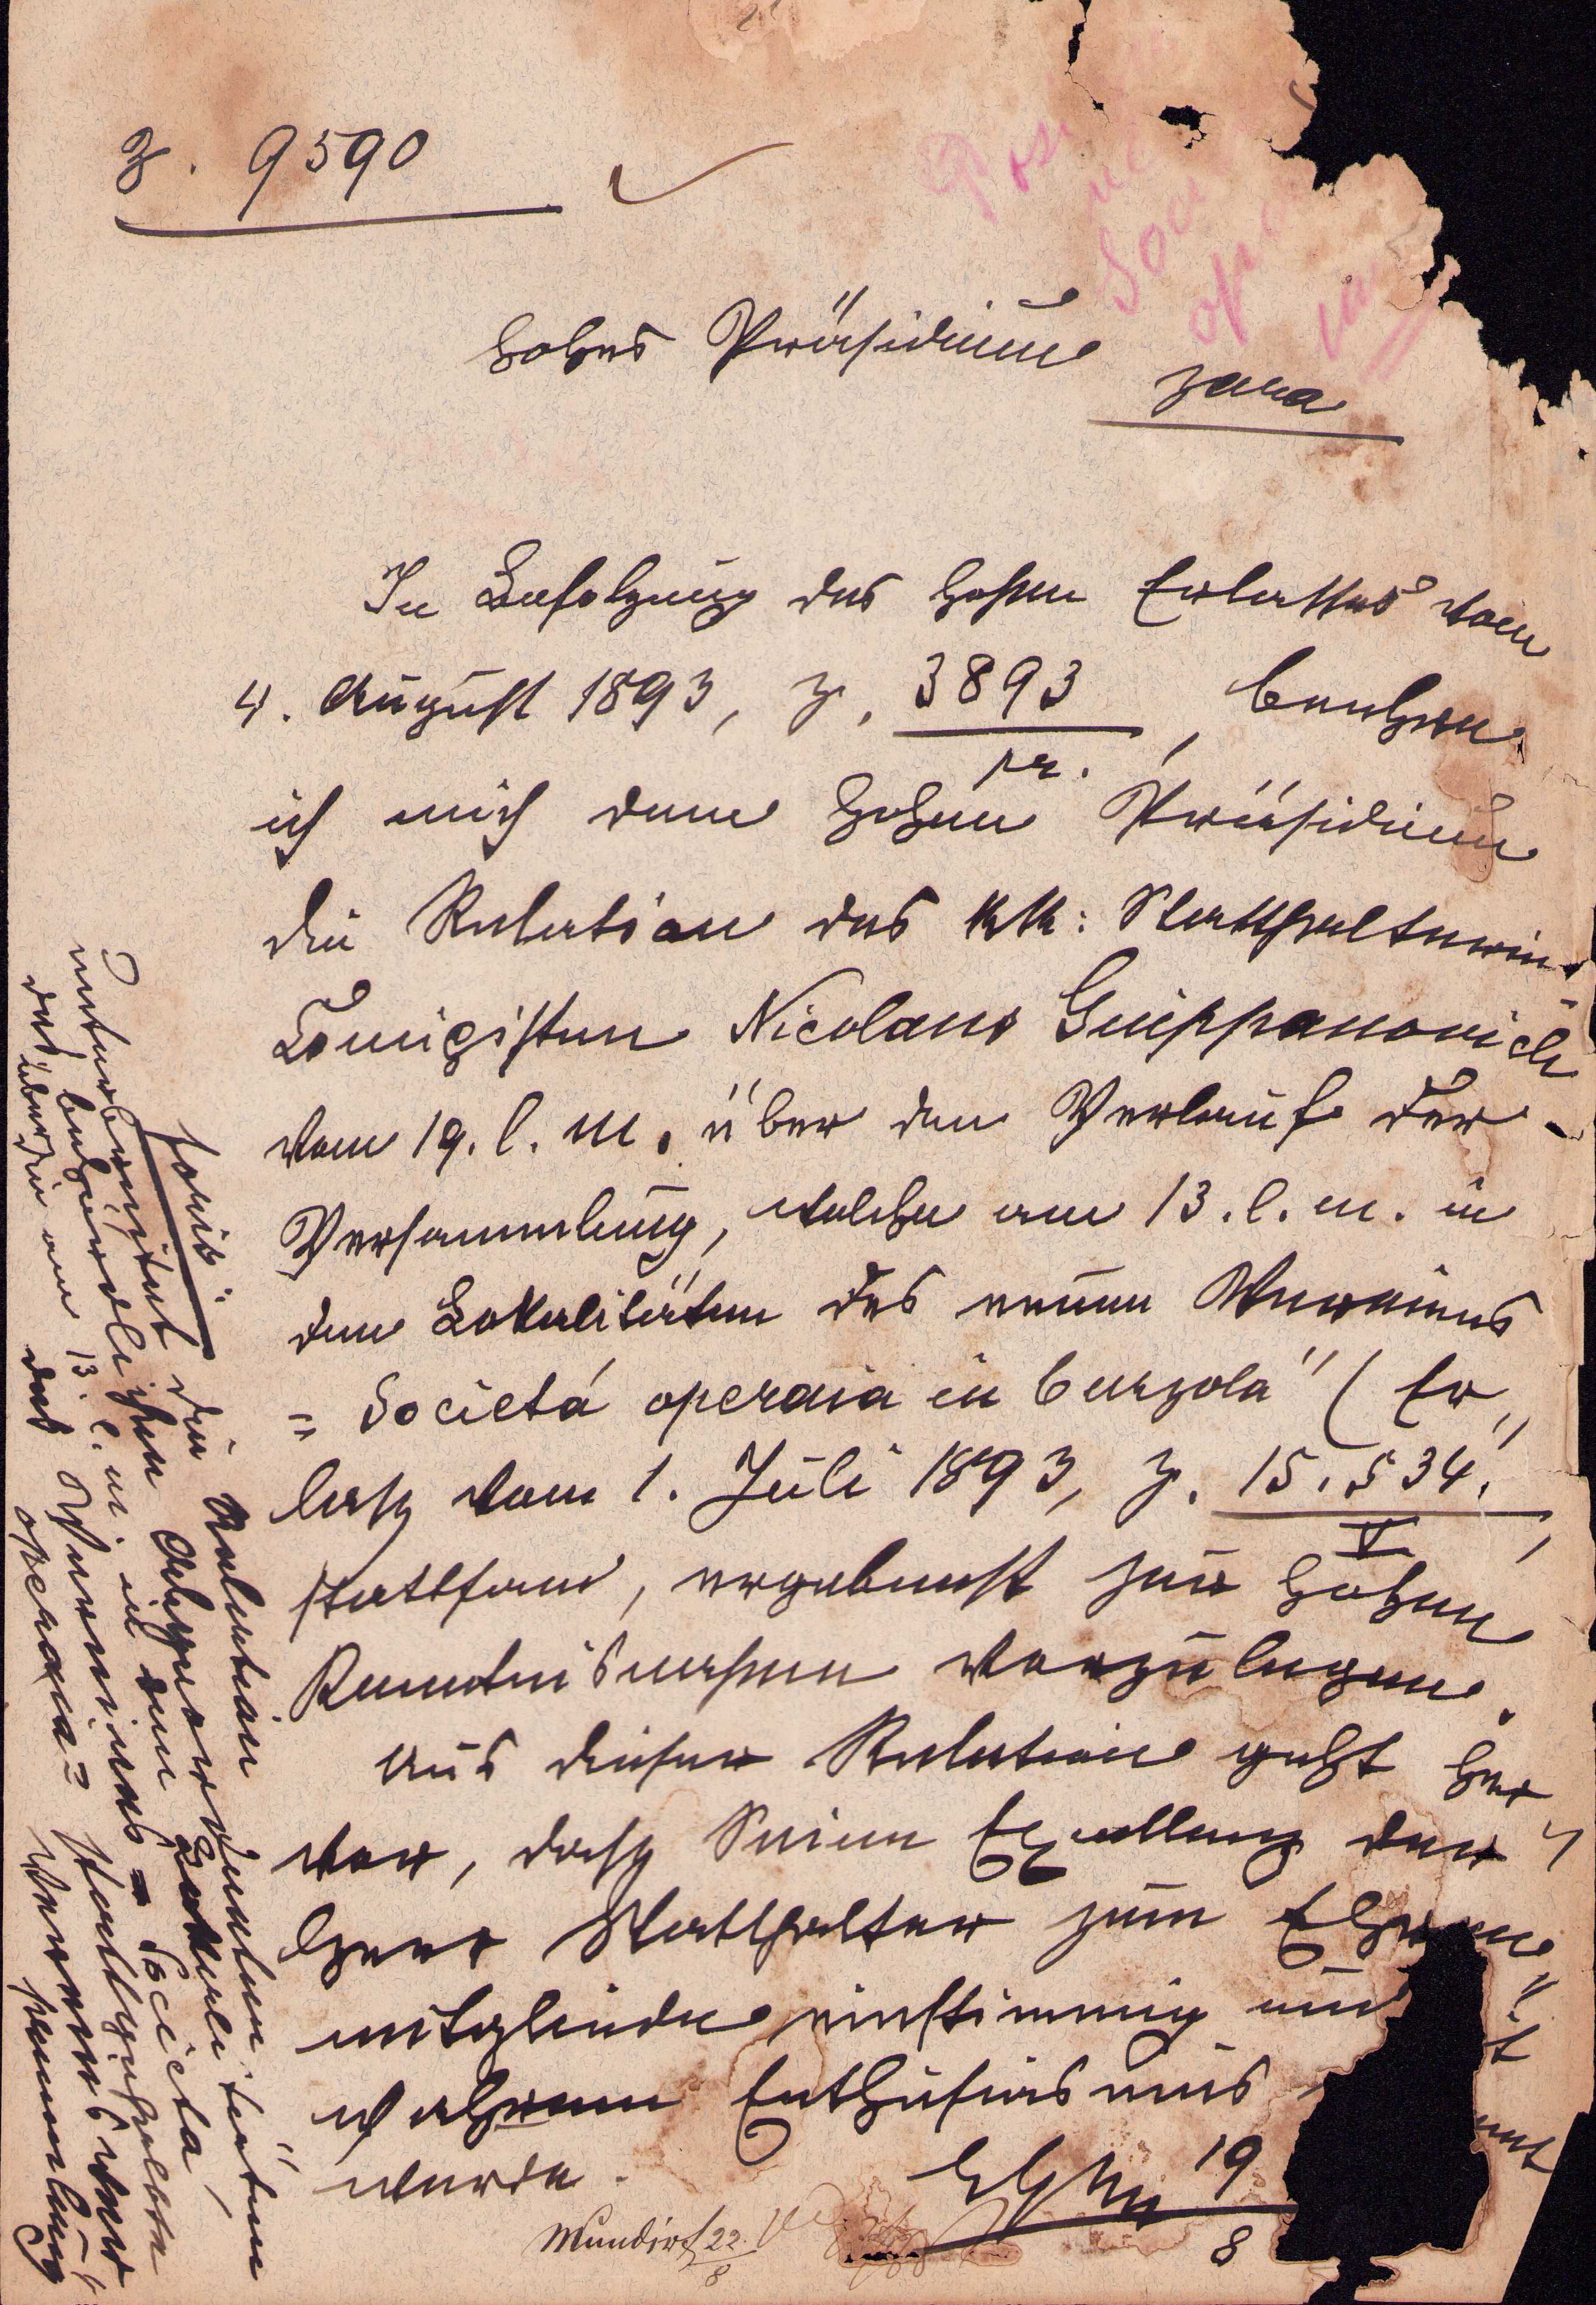 Z. 9590
Hohes Präsidium
Zara
In Befolgung des hohen Erlasses vom
4. August 1893, Z. 3893/pr., beehre
ich mich dem hohen Präsidium
die Relation des kk: Statthalterei
Conzipisten Nicolaus Giuppanovich
vom 19. l. M. über den Verlauf der
Versammlung, welche am 13. l. m. in
den Lokalitäten des neuen Vereines
„Societá operaia in Curzola" (Er„
laß vom 1. Juli 1893, Z. 15.534/V,
stattfand, ergebenst zur hohen
Kenntnisnahme vorzulegen.
Aus dieser Relation geht her
vor, daß Seine Exzellenz der
Herr Statthalter zum Ehren„
mitgliede einstimmig und
wahrem Enthusiasmus
wurde.
19/8
Mundirt 22./8
die Relation
unterbreitet den Abgeordneten
des behördlichen
über die am 13. l. m. in den Lokalitäten
des Vereines = Societa
operaia = stattgehabte
Versammlung